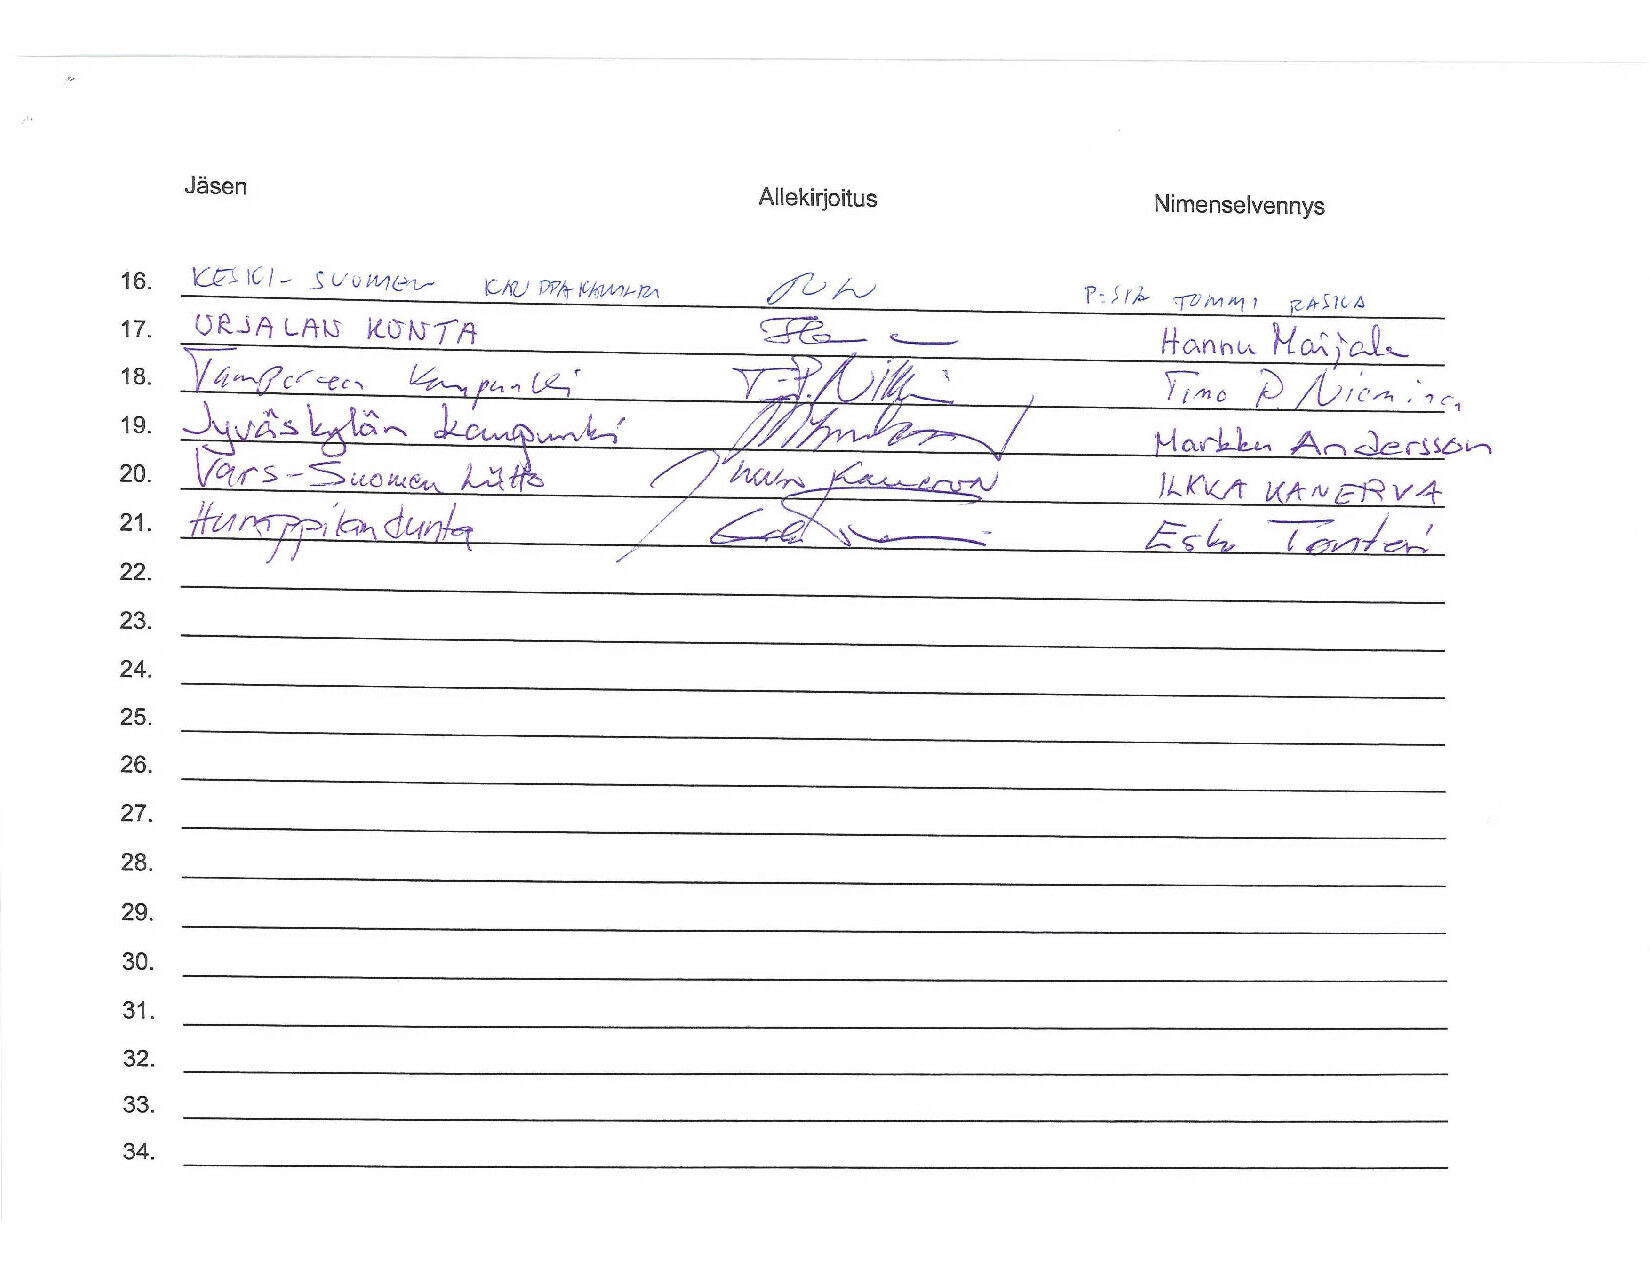 Jäsen Allekirjoitus Nimenselvennys
16. KESKI-SUOMEN KAUPPAKAMARI TOMMI RASILA
17. URJALAN KUNTA Hannu Maijala
18. Tampereen Kaupunki T.P. Timo P Nieminen
19. Jyväskylän kaupunki Markku Andersson
20. Vars-Suomen Liitto Kanerva ILKKA KANERVA
21. Humppilan kunta Esko Tonteri
22.
23.
24.
25.
26.
27.
28.
29.
30.
31.
32.
33.
34.